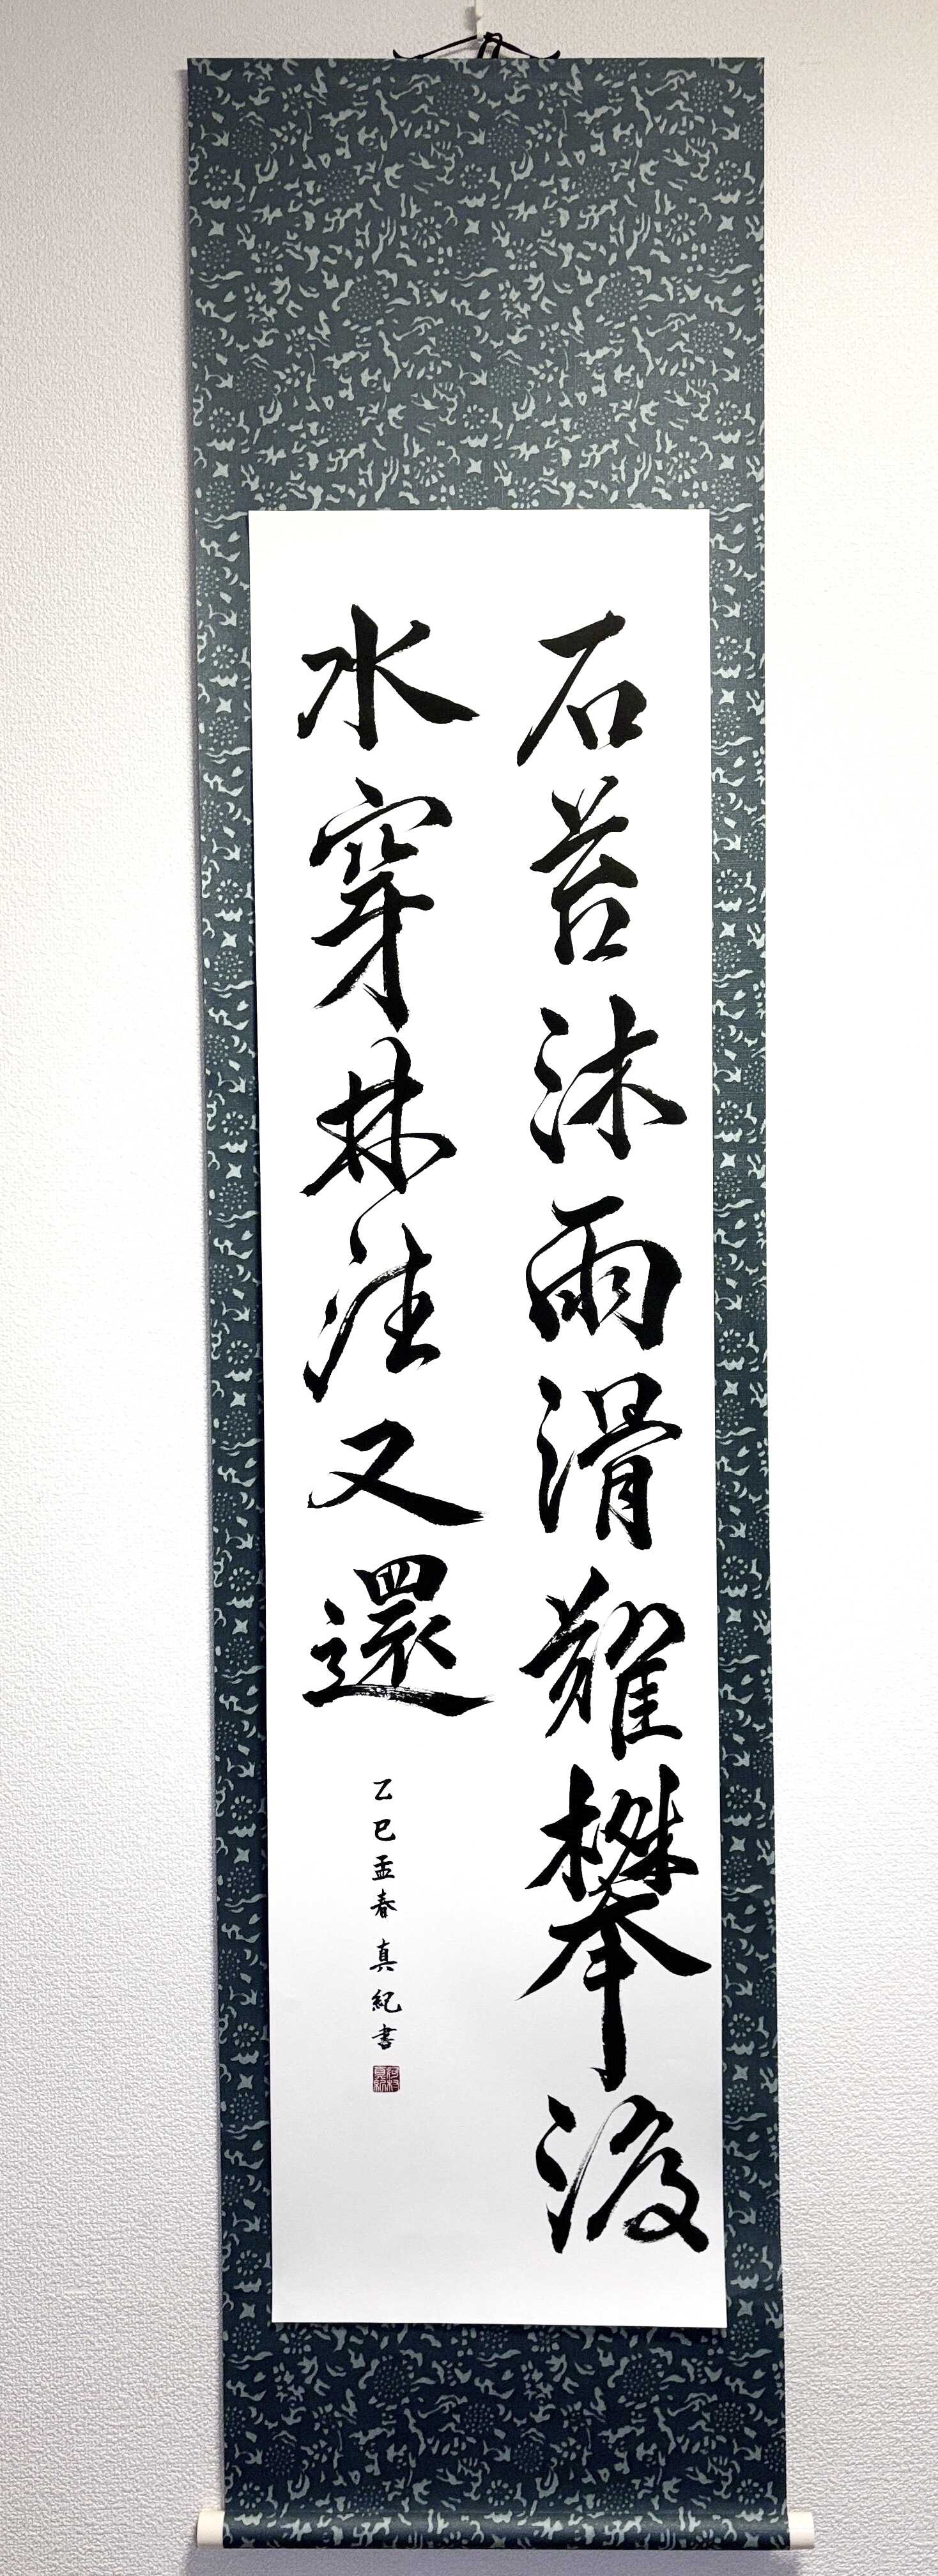 石苔沐雨滑難攀渡
水穿林往又還
乙巳孟春 真紀書